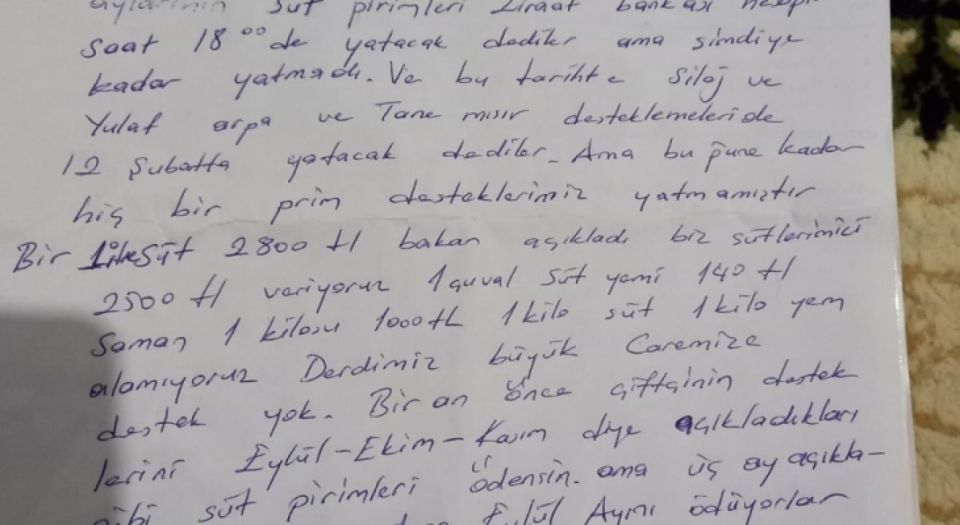 aylarının süt pirimleri Ziraat bankası
saat 18⁰⁰ de yatacak dediler ama şimdiye
kadar yatmadı. Ve bu tarihte Silaj ve
Yulaf arpa ve Tane mısır desteklemeleride
12 Şubatta yatacak dediler. Ama bu güne kadar
hiç bir prim desteklerimiz yatmamıştır
Bir Süt 2800 tl bakan açıkladı biz sütlerimizi
2500 tl veriyoruz 1 çuval Süt yemi 140 tl
Saman 1 kilosu 1000 tl 1 kilo süt 1 kilo yem
alamıyoruz Derdimiz büyük Caremize
destek yok. Bir an önce çiftçinin destek
lerini Eylül-Ekim-Kasım diye açıkladıkları
gibi süt pirimleri ödensin. ama üç ay açıkla-
Eylül Ayını ödüyorlar